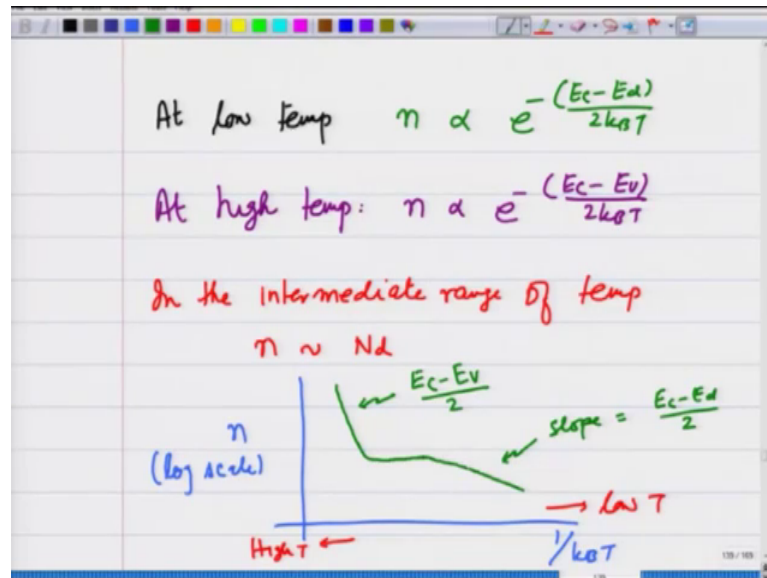 B I
At low temp n ∝ e^{-(Ec-Ed)/2kBT}
At high temp: n ∝ e^{-(Ec-Ev)/2kBT}
In the intermediate range of temp
n ~ Nd
Ec-Ev/2
n
(log scale)
slope = Ec-Ed/2
→ low T
High T ←
1/kBT
139 / 169